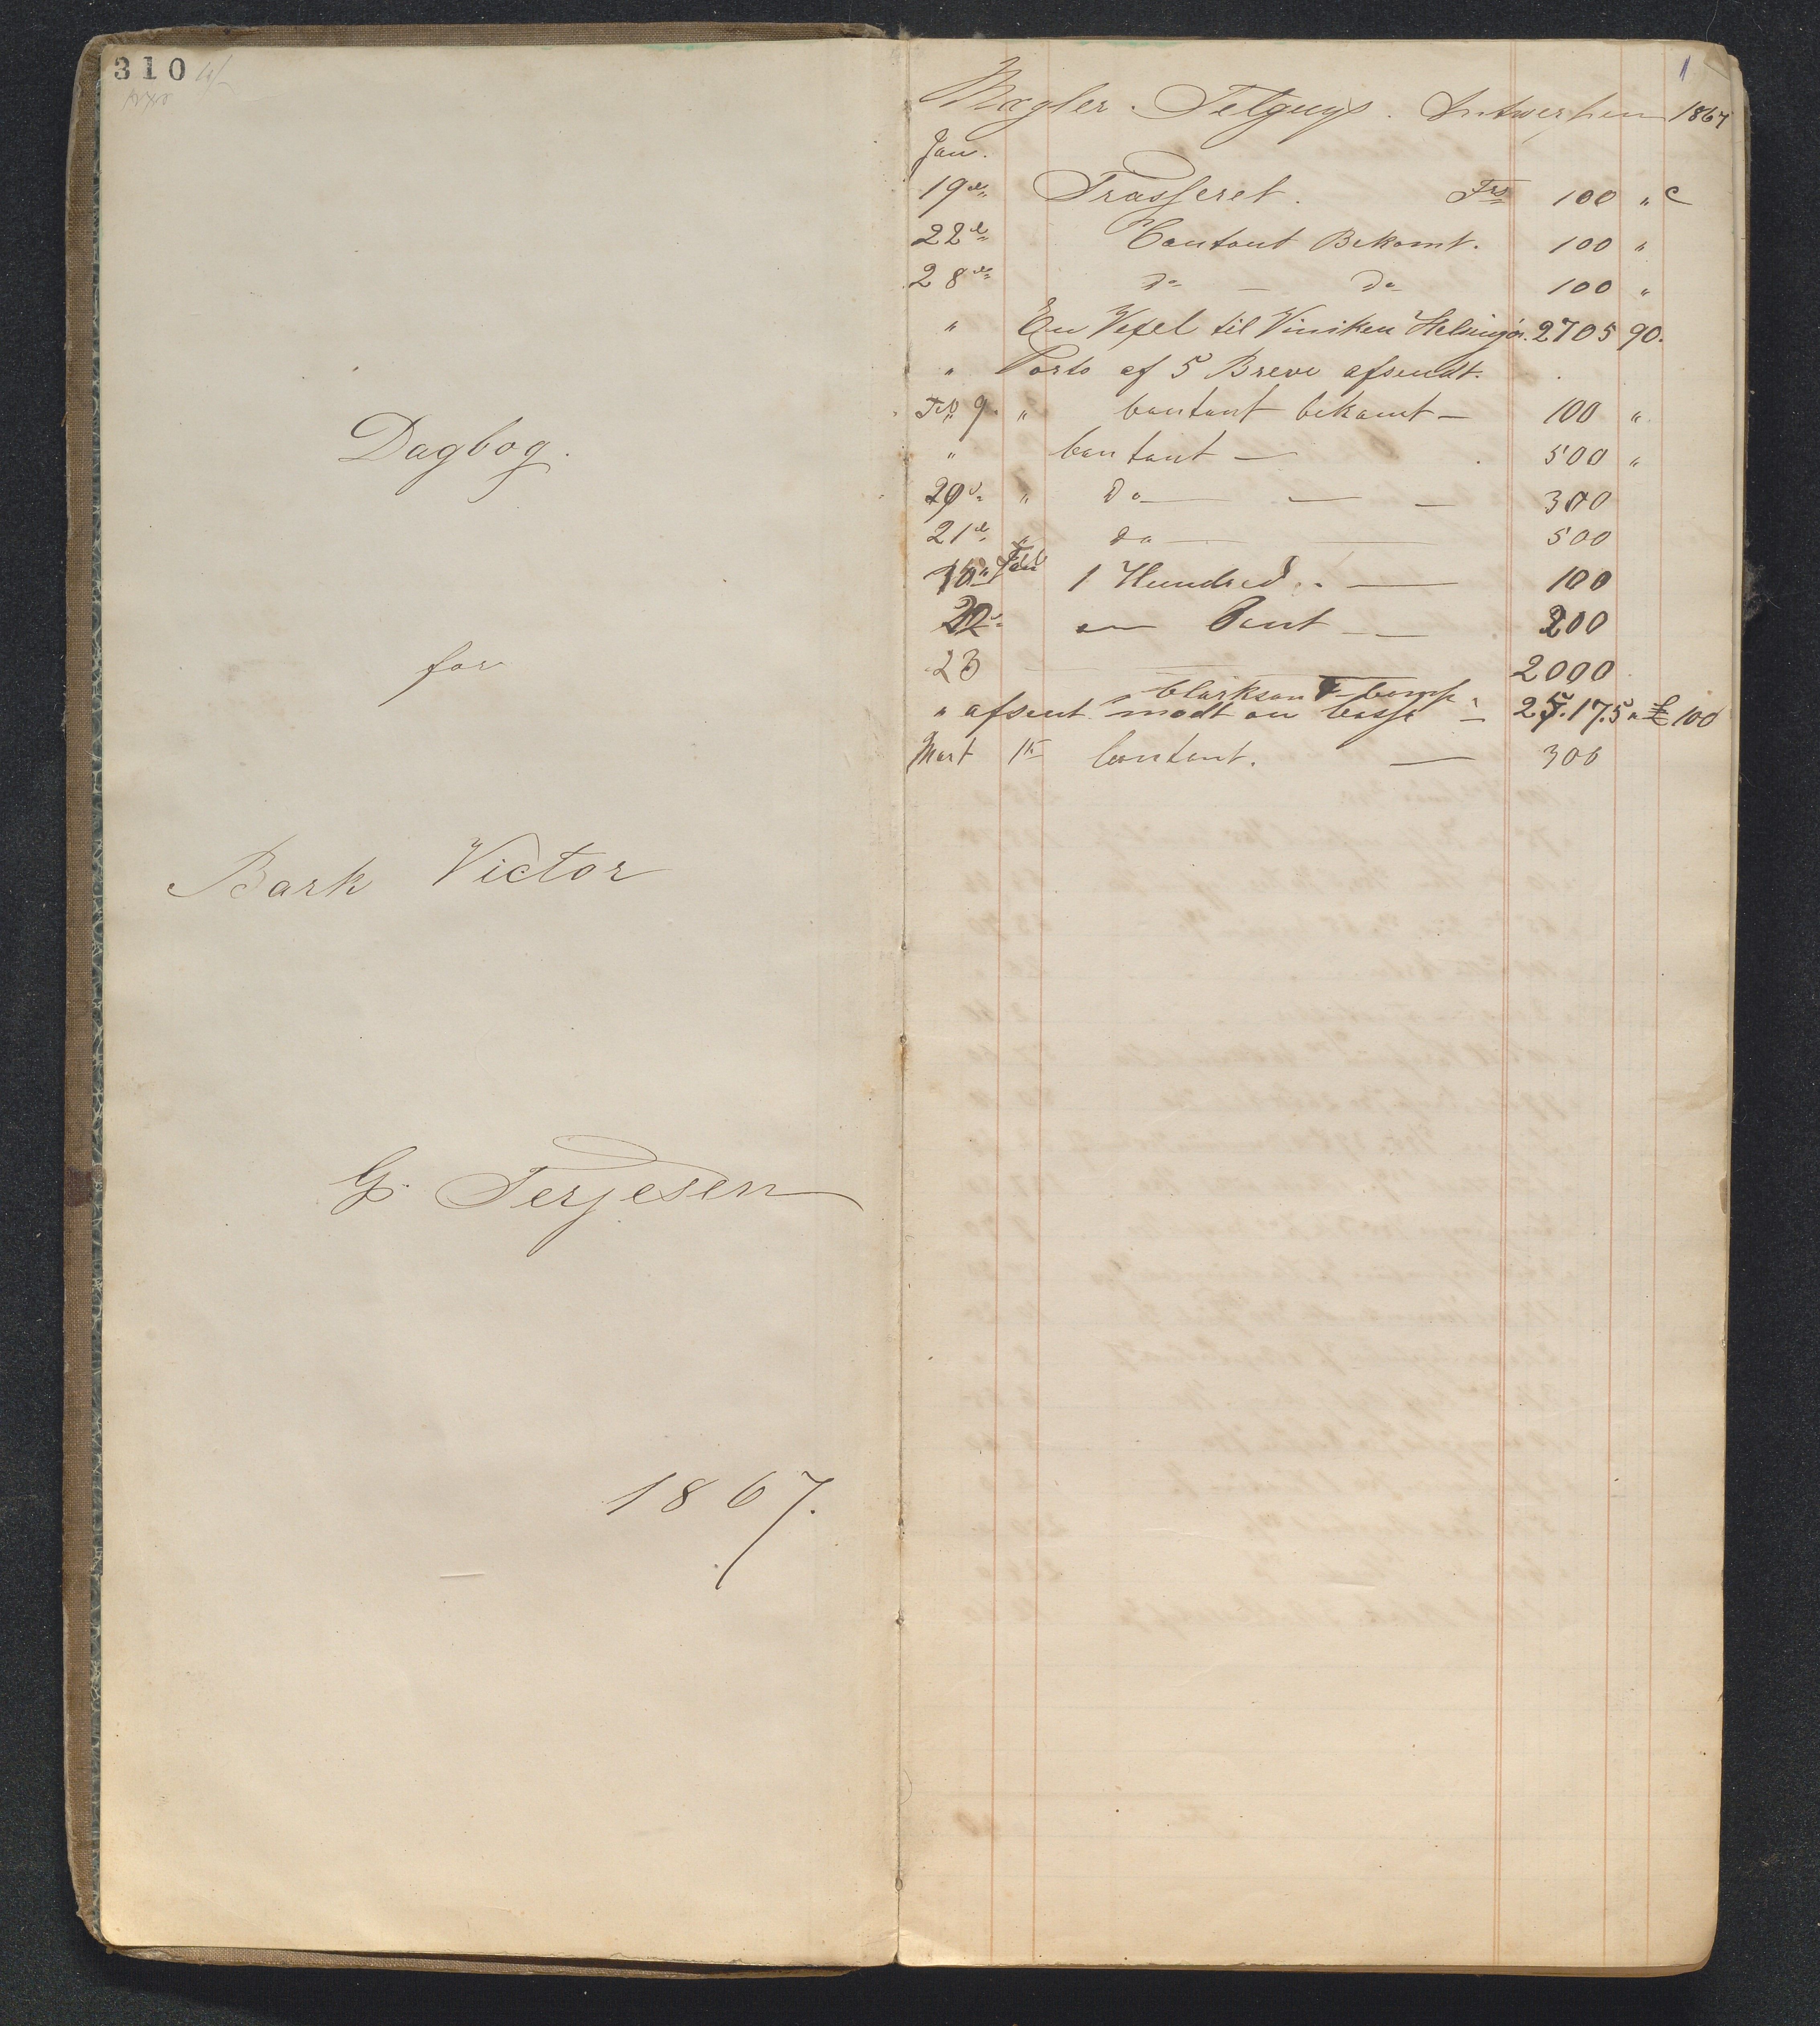 310
Dagbog.
for
Bark Victor
G. Terjesen
1867.
1
Mægler Antwerpen 1867
Jan.
19de Trasseret. Frs 100 " c
22de Contant Bekomt. 100 "
28de do — do 100 "
" En Vexel til Helsingør. 2705 90.
" Porto af 5 Breve afsendt.
Feb 9. " Contant bekomt — 100 "
" Contant — 500 "
20de " do — — — 300
21de " do — — 500
Feb 1 Hundred. — 100
Cont — — 200
23 — — 2000
Clarkson
" afsent modt en — 25.17.5 a £ 100
Mart 1te Contant. — 300